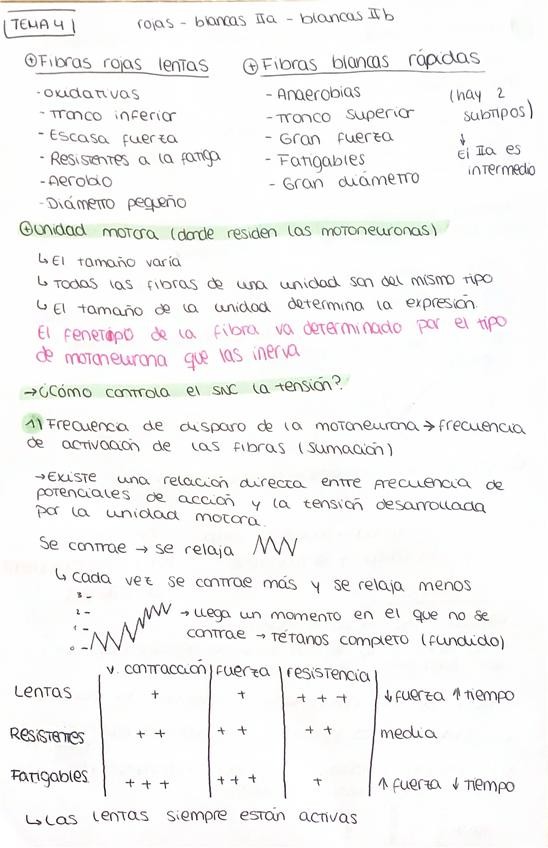 TEMA 4
rojas - blancas IIa - blancas IIb
Fibras rojas lentas
- oxidativas
- Tronco inferior
- Escasa fuerza
- Resistentes a la fatiga
- Aerobio
- Diámetro pequeño
Fibras blancas rápidas
- Anaerobias
- Tronco superior
- Gran fuerza
- Fatigables
- Gran diámetro
(hay 2
subtipos)
↓
El IIa es
intermedio
Unidad motora (donde residen las motoneuronas)
↳ El tamaño varía
↳ Todas las fibras de una unidad son del mismo tipo
↳ El tamaño de la unidad determina la expresión.
El fenotipo de la fibra va determinado por el tipo
de motoneurona que las inerva
→ ¿Cómo controla el SNC la tensión?
1) Frecuencia de disparo de la motoneurona → frecuencia
de activación de las fibras (sumación)
→ Existe una relación directa entre frecuencia de
potenciales de acción y la tensión desarrollada
por la unidad motora.
Se contrae → se relaja
↳ cada vez se contrae más y se relaja menos
3 -
2 -
1 -
0 -
→ llega un momento en el que no se
contrae → tétanos completo (fundido)
v. contracción | fuerza | resistencia
Lentas + + + + + ↓ fuerza ↑ tiempo
Resistentes + + + + + + media
Fatigables + + + + + + + ↑ fuerza ↓ tiempo
↳ Las lentas siempre están activas